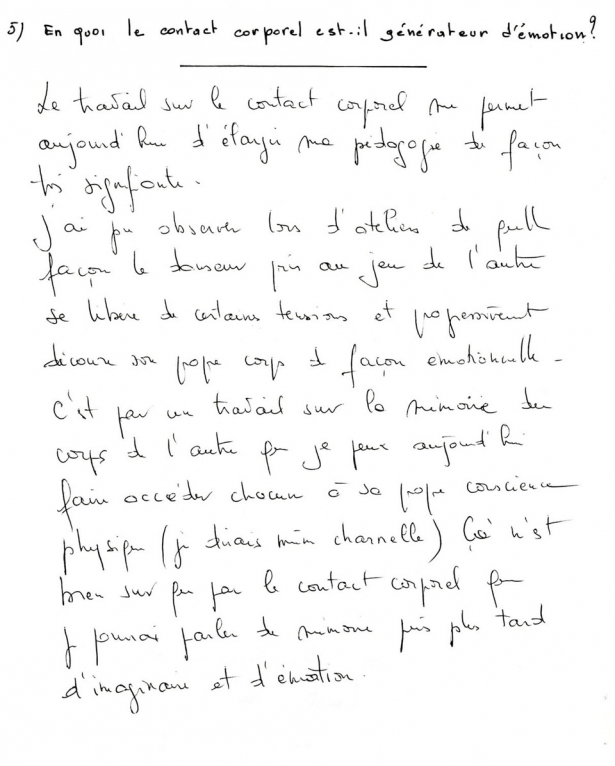 5) En quoi le contact corporel est-il générateur d'émotion?
Le travail sur le contact corporel me permet
aujourd'hui d'élargir ma pédagogie de façon
très signifiante.
J'ai pu observer lors d'ateliers de quelle
façon le danseur pris au jeu de l'autre
se libère de certaines tensions et progressivement
découvre son propre corps de façon émotionnelle.
C'est par un travail sur la mémoire du
corps de l'autre que je peux aujourd'hui
faire accéder chacun à sa propre conscience
physique (je dirais même charnelle) n'est
bien sur que par le contact corporel que
je pourrai parler de mémoire puis plus tard
d'imaginaire et d'émotion.